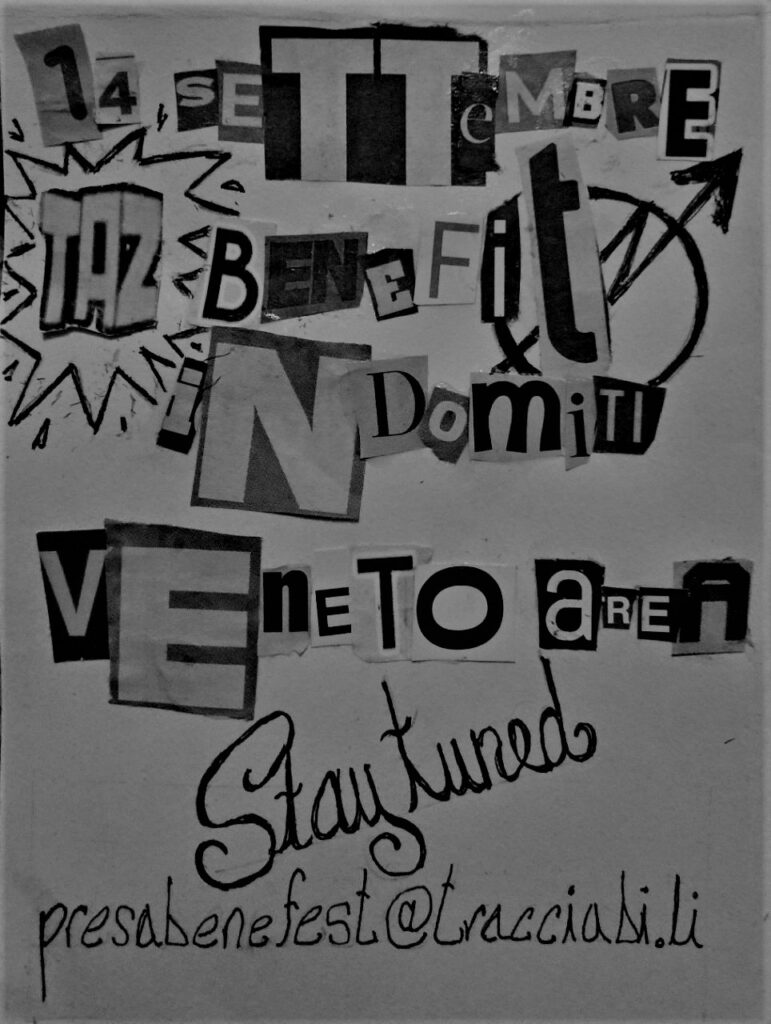 14 SETTeMBRE
TAZ BENEFit
iNDomiTI
VEnETO aREA
Stay tuned
presabenefest@tracciabi.li